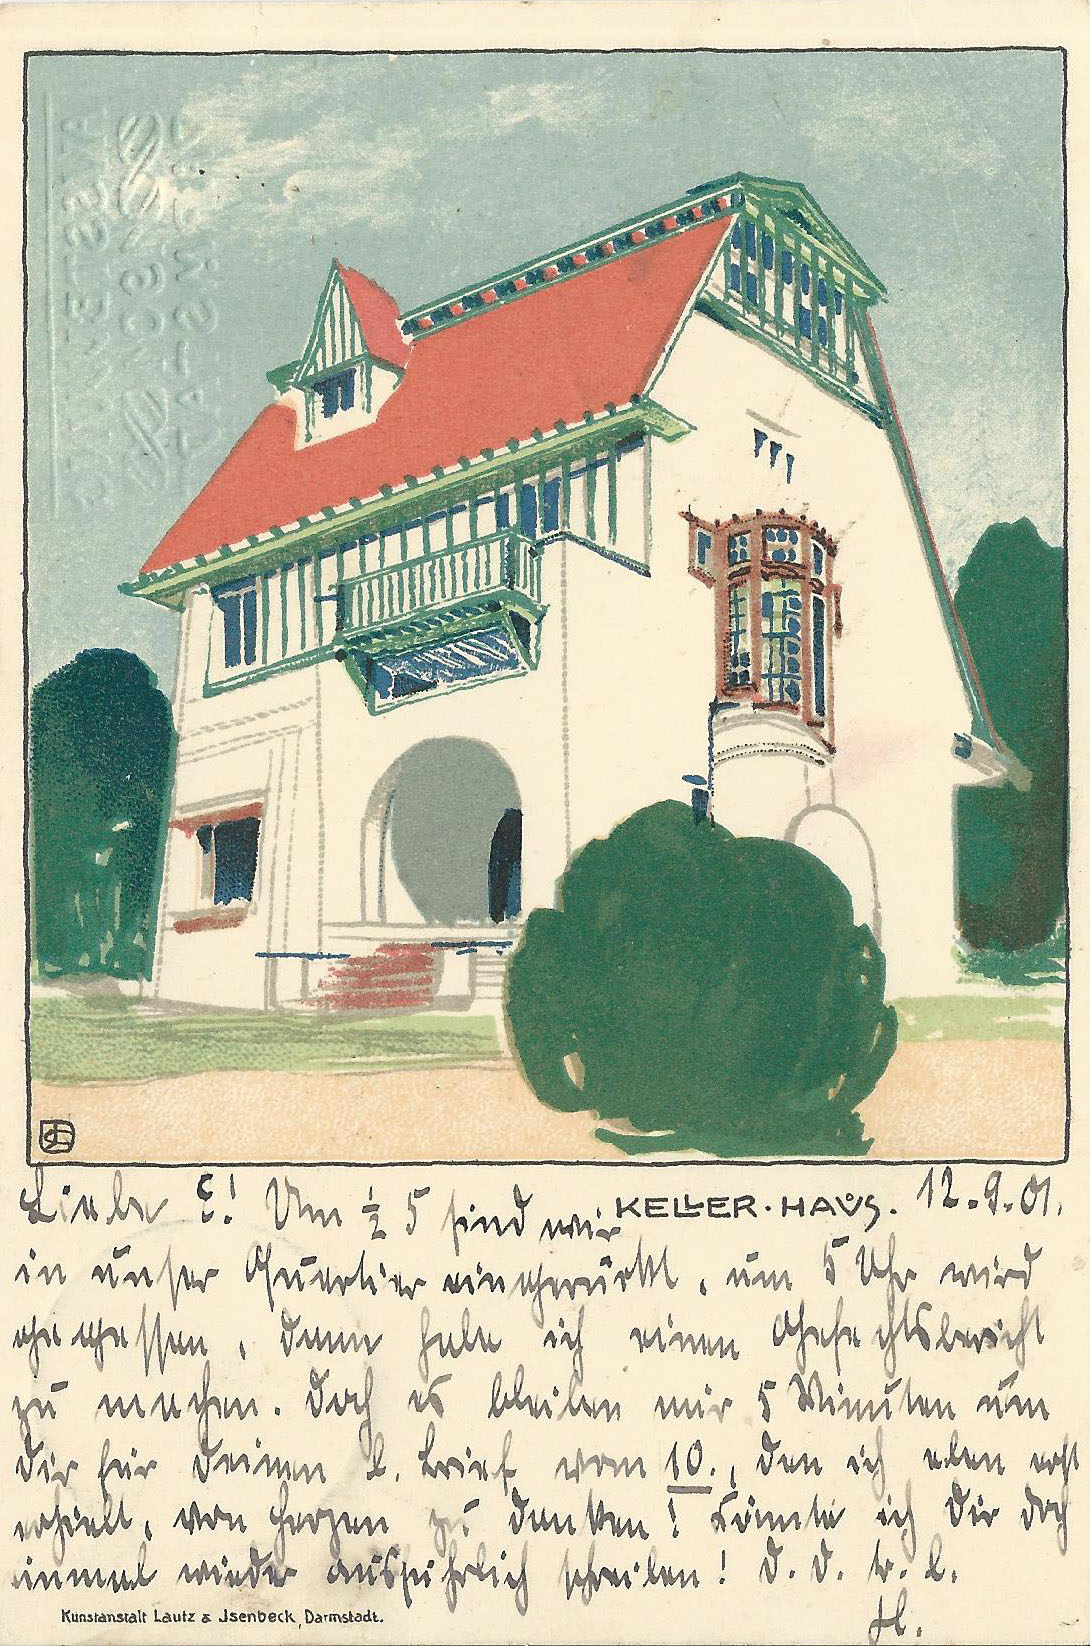 KELLER·HAUS.
12.9.01.
Liebe E! Um ½ 5 sind wir
in unser Quartier eingerückt, um 5 Uhr wird
gegessen, dann habe ich einen Gefechtsbericht
zu machen. Doch es bleiben mir 5 Minuten um
Dir für Deinen l. Brief vom 10., den ich eben erst
erhielt, von Herzen zu danken! Könnte ich Dir doch
einmal wieder ausführlich schreiben! D. D. tr. l.
H.
Kunstanstalt Lautz & Jsenbeck, Darmstadt.